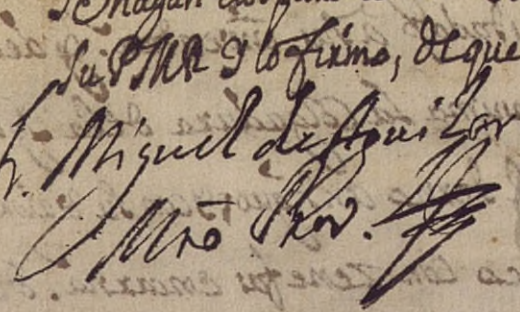 Su P M R y lo firmo, de que
fr. Miguel de Aguilar
Mrō Prov.